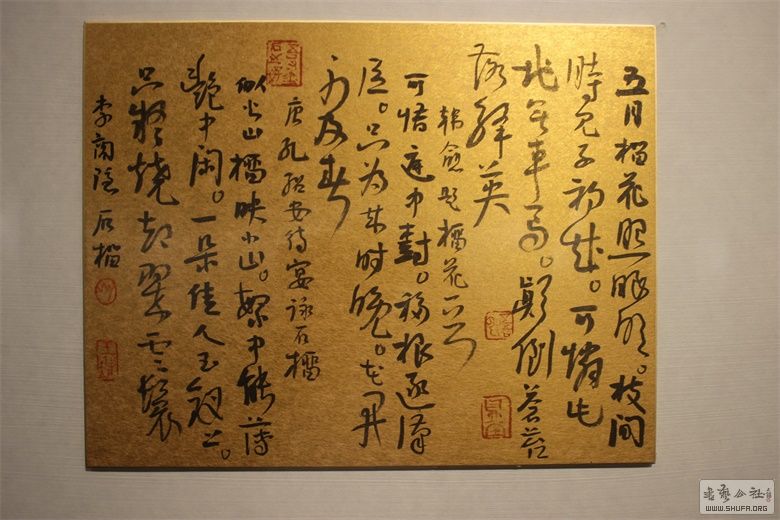 五月榴花照眼明。枝间
时见子初成。可怜此
地无车马。颠倒苍苔
落绛英
韩愈题榴花
可惜庭中树。移根逐汉
臣。只为来时晚。花开
不及春
唐孔绍安侍宴咏石榴
似火山榴映小山。繁中能薄
艳中闲。一朵佳人玉钗上。
只疑烧却翠云鬟
李商隐 石榴
书艺公社
WWW.SHUFA.ORG